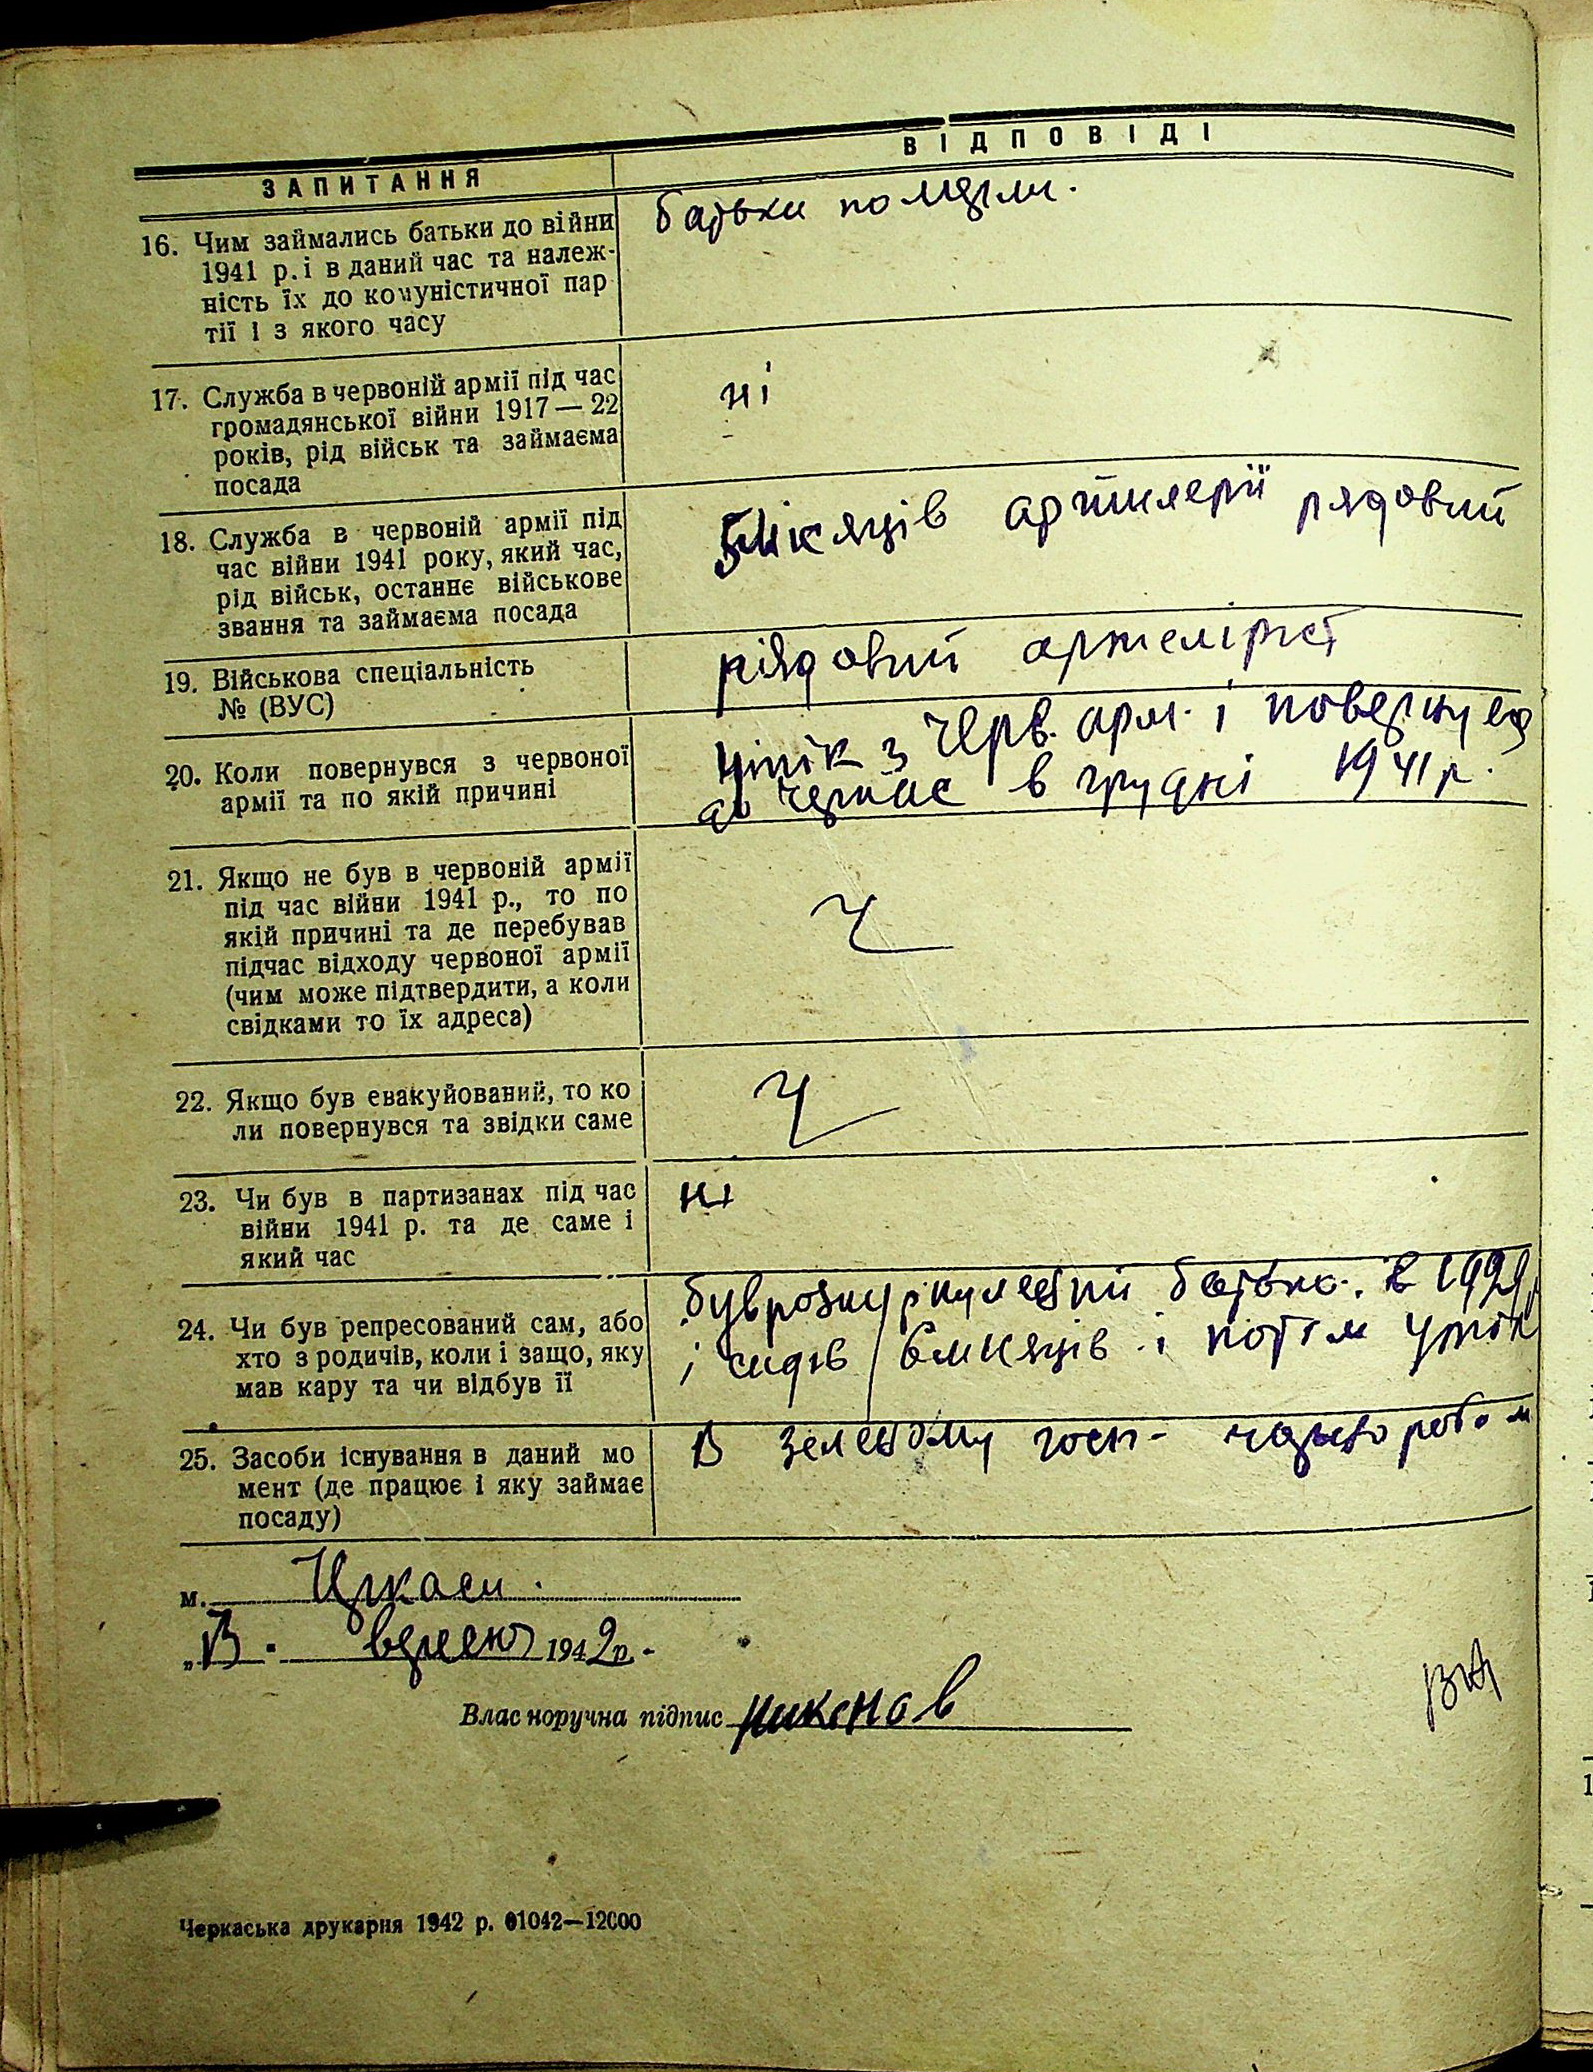 ЗАПИТАННЯ
ВІДПОВІДІ
16. Чим займались батьки до війни
1941 р. і в даний час та належ-
ність їх до комуністичної пар
тії і з якого часу
батьки помэрли.
17. Служба в червоній армії під час
громадянської війни 1917 — 22
років, рід військ та займаєма
посада
ні
18. Служба в червоній армії під
час війни 1941 року, який час,
рід військ, останнє військове
звання та займаєма посада
5місяців артилерії рядовий
19. Військова спеціальність
№ (ВУС)
рядовий
20. Коли повернувся з червоної
армії та по якій причині
утік з Черв. арм. і повернувся
до Черкас в грудні 1941 р.
21. Якщо не був в червоній армії
під час війни 1941 р., то по
якій причині та де перебував
підчас відходу червоної армії
(чим може підтвердити, а коли
свідками то їх адреса)
22. Якщо був евакуйований, то ко
ли повернувся та звідки саме
23. Чи був в партизанах під час
війни 1941 р. та де саме і
який час
ні
24. Чи був репресований сам, або
хто з родичів, коли і защо, яку
мав кару та чи відбув її
був батько. в
і сидів 6місяців і потім утік
25. Засоби існування в даний мо
мент (де працює і яку займає
посаду)
В зеленому госп-
м. Чркаси.
„13. вересня 1942р.
Власноручна підпис
Черкаська друкарня 1942 р. 01042—12000